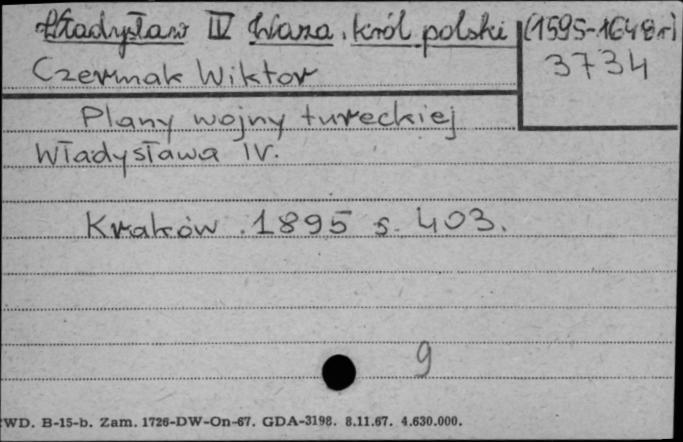 Władysław IV Waza, król polski (1595-1648r)
3734
Czermak Wiktor
Plany wojny tureckiej
Władysława IV.
Kraków. 1895 s. 403.
9
WD. B-15-b. Zam. 1726-DW-On-67. GDA-3198. 8.11.67. 4.630.000.